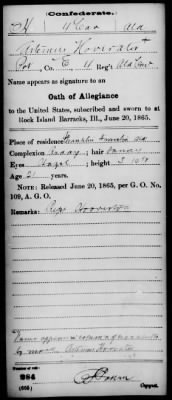 Confederate.
H 4 Cav Ala
Artemus Hovirater
Pvt, Co. E 4 Reg't Ala Cav
Name appears as signature to an
Oath of Allegiance
to the United States, subscribed and sworn to at
Rock Island Barracks, Ill., June 20, 1865.
Place of residence Franklin Ala
Complexion ; hair Sandy
Eyes Hazel; height 5
Age 21 years.
NOTE: Released June 20, 1865, per G. O. No.
109, A. G. O.
Remarks:
Name appears in column of
by mark Artemus
Number of roll:
284
(663) Copyist.